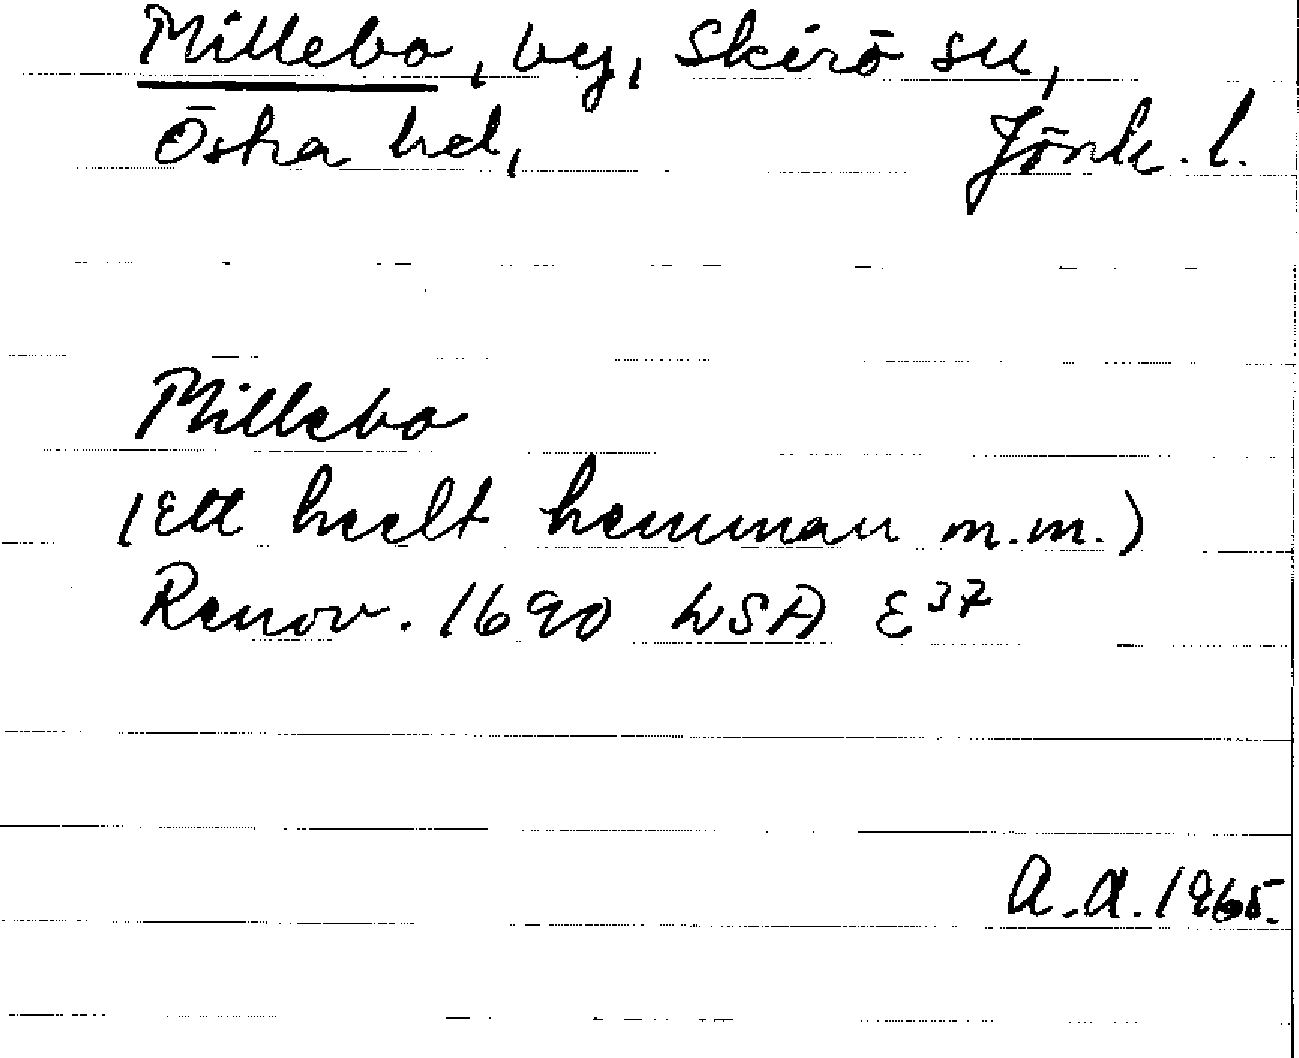 Millebo, by, Skirö sn,
Östra hd, Jönk. l.
Millebo
(Ett heelt hemman m.m.)
Renov. 1690 LSA E37
A.A. 1965.